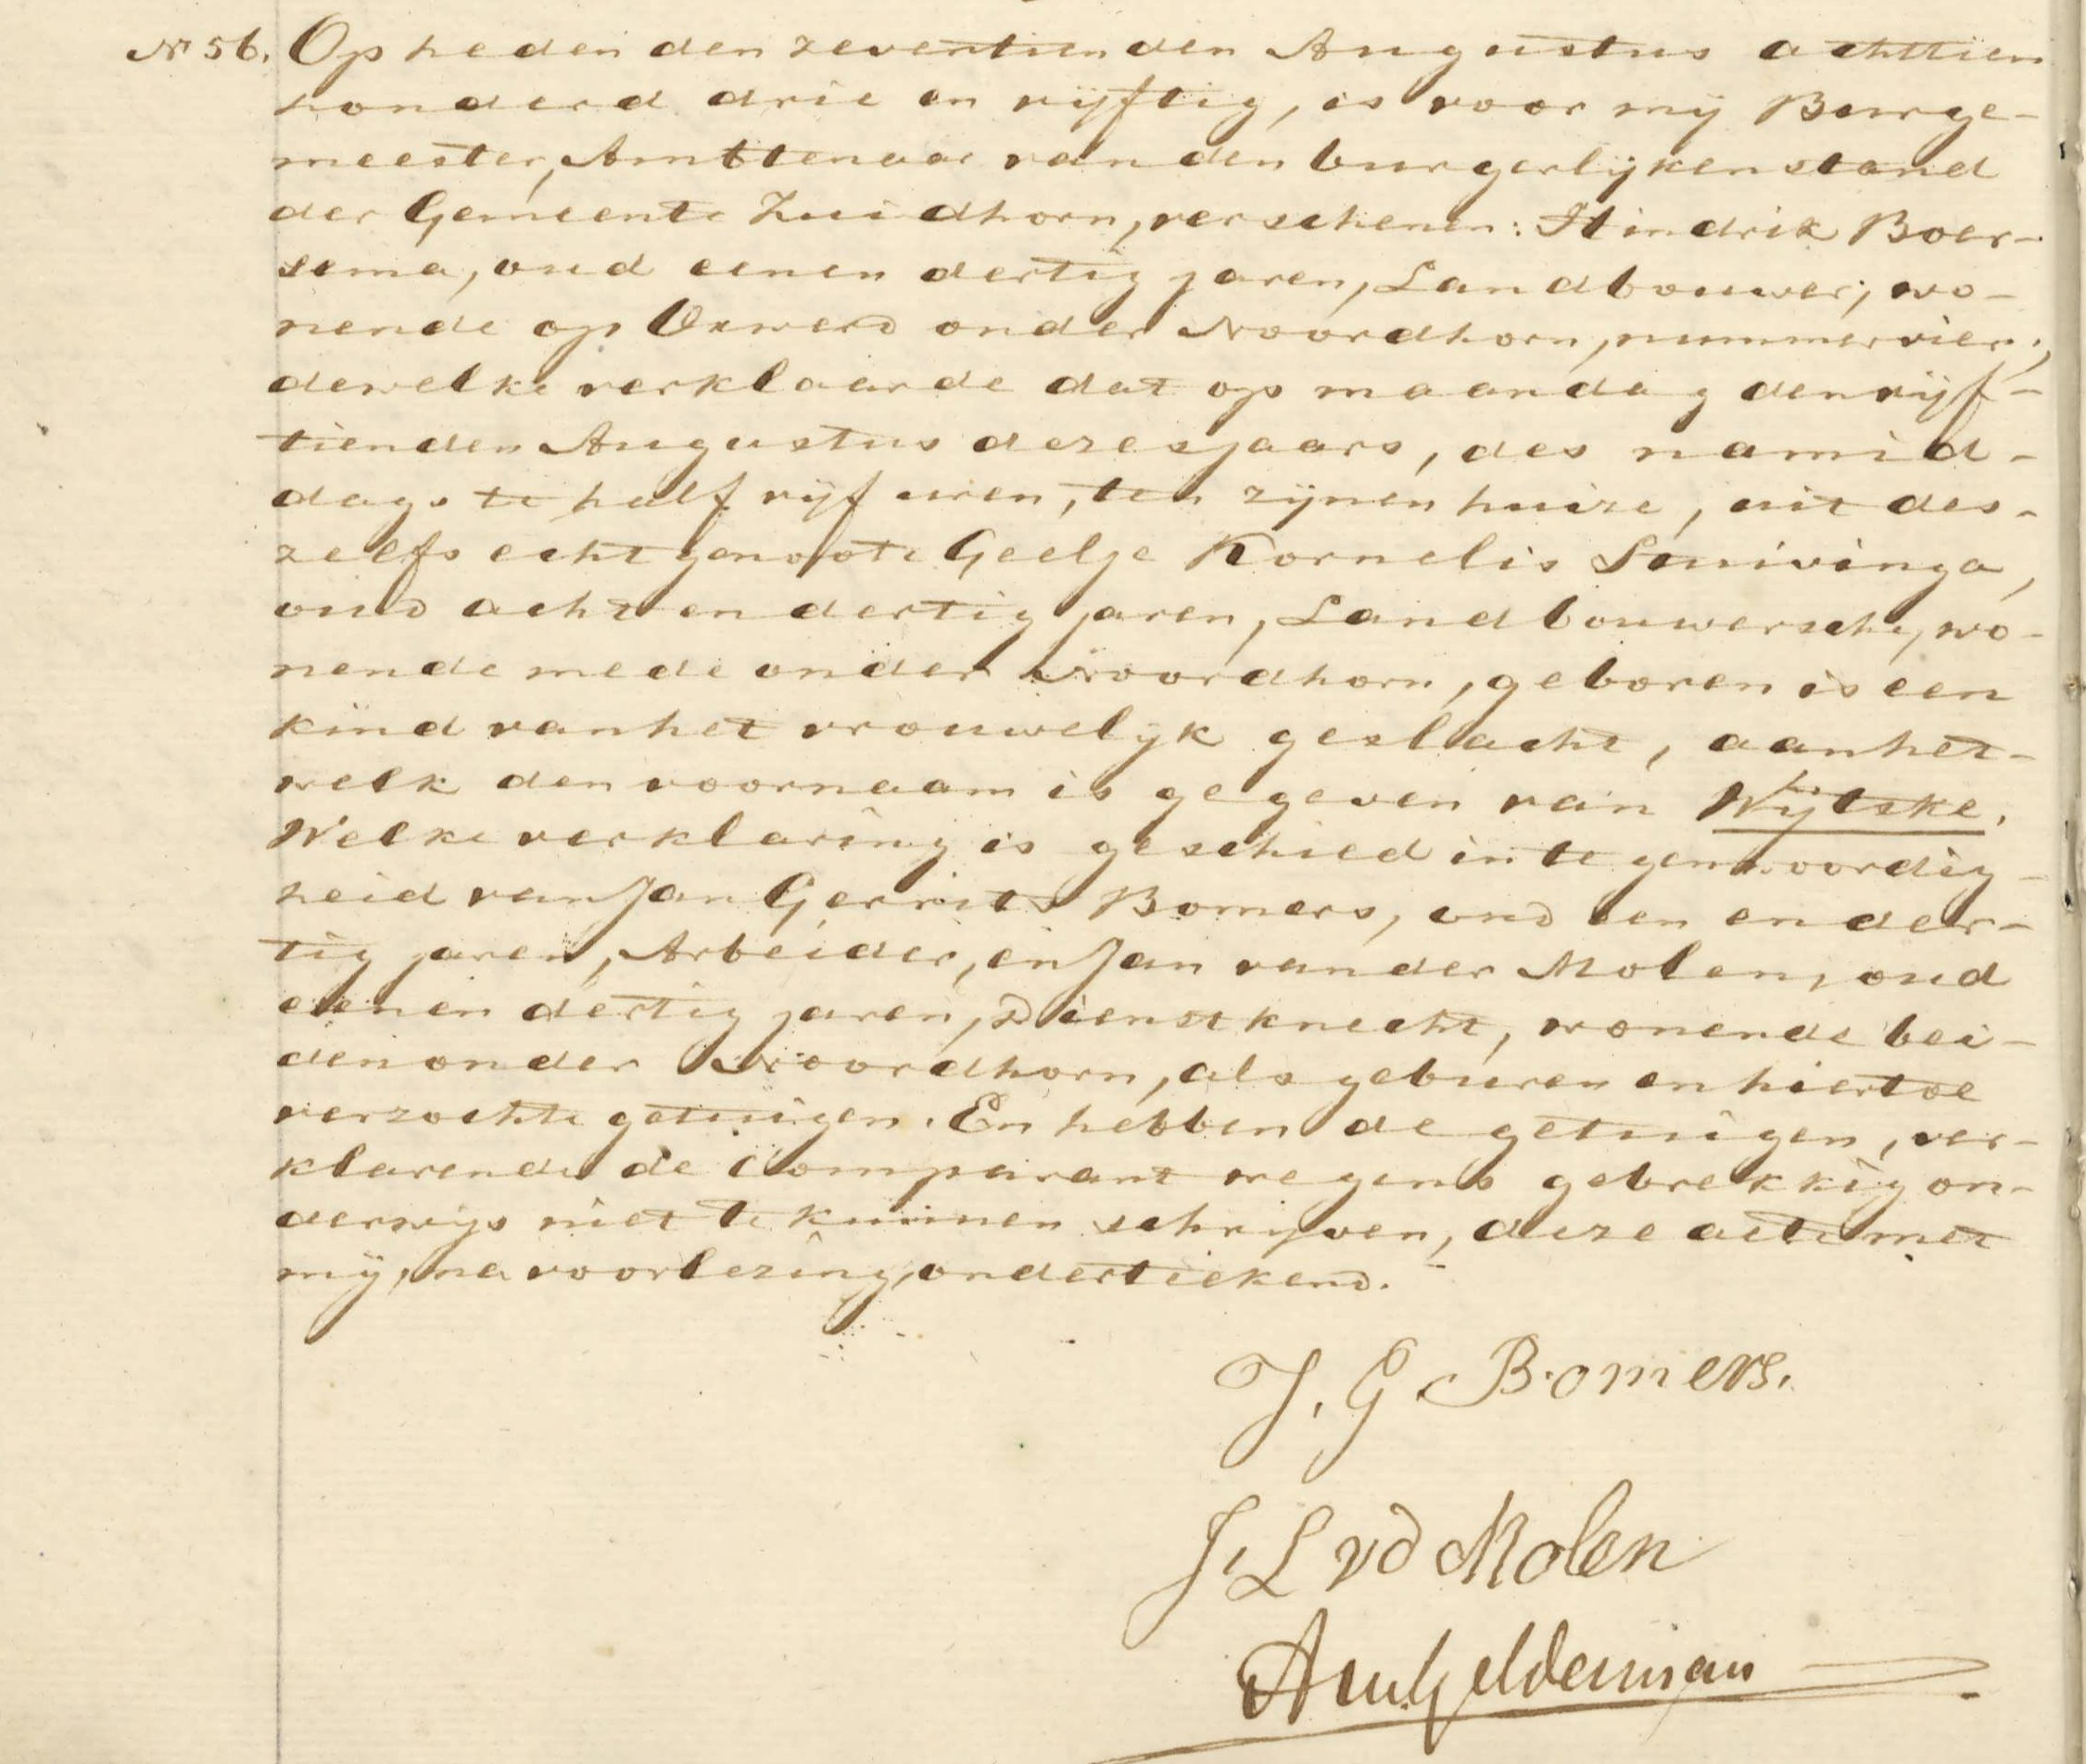 N 56. Op heden den zeventienden Augustus achttien
honderd drie en vijftig, is voor mij Burge-
meester, Ambtenaar van den burgerlijken stand
der Gemeente Zuidhorn, verschenen: Hindrik Boer-
sema, oud eenen dertig jaren, Landbouwer, wo-
nende op Oxwerd onder Noordhorn, nummer vier,
dewelke verklaarde dat op maandag den vijf-
tienden Augustus dezes jaars, des namid-
dags te half vijf uren, ten zijnen huize, uit des-
zelfs echtgenoote Geelje Kornelis Snuivinga,
oud acht en dertig jaren, Landbouwersche, wo-
nende mede onder Noordhorn, geboren is een
kind van het vrouwelijk geslacht, aan het-
welk den voornaam is gegeven van Wijtske.
Welke verklaring is geschied in tegenwoordig-
heid van Jan Gerrits Bomers, oud een en der-
tig jaren, Arbeider, en Jan van der Molen, oud
eenen dertig jaren, Dienstknecht, wonende bei-
den onder Noordhorn, als geburen en hiertoe
verzochte getuigen. En hebben de getuigen, ver-
klarende de Comparant wegens gebrekkig on-
derwijs niet te kunnen schrijven, deze acte met
mij, na voorlezing, ondertiekend.
J. G Bomers.
J. L vd Molen
Gelderman